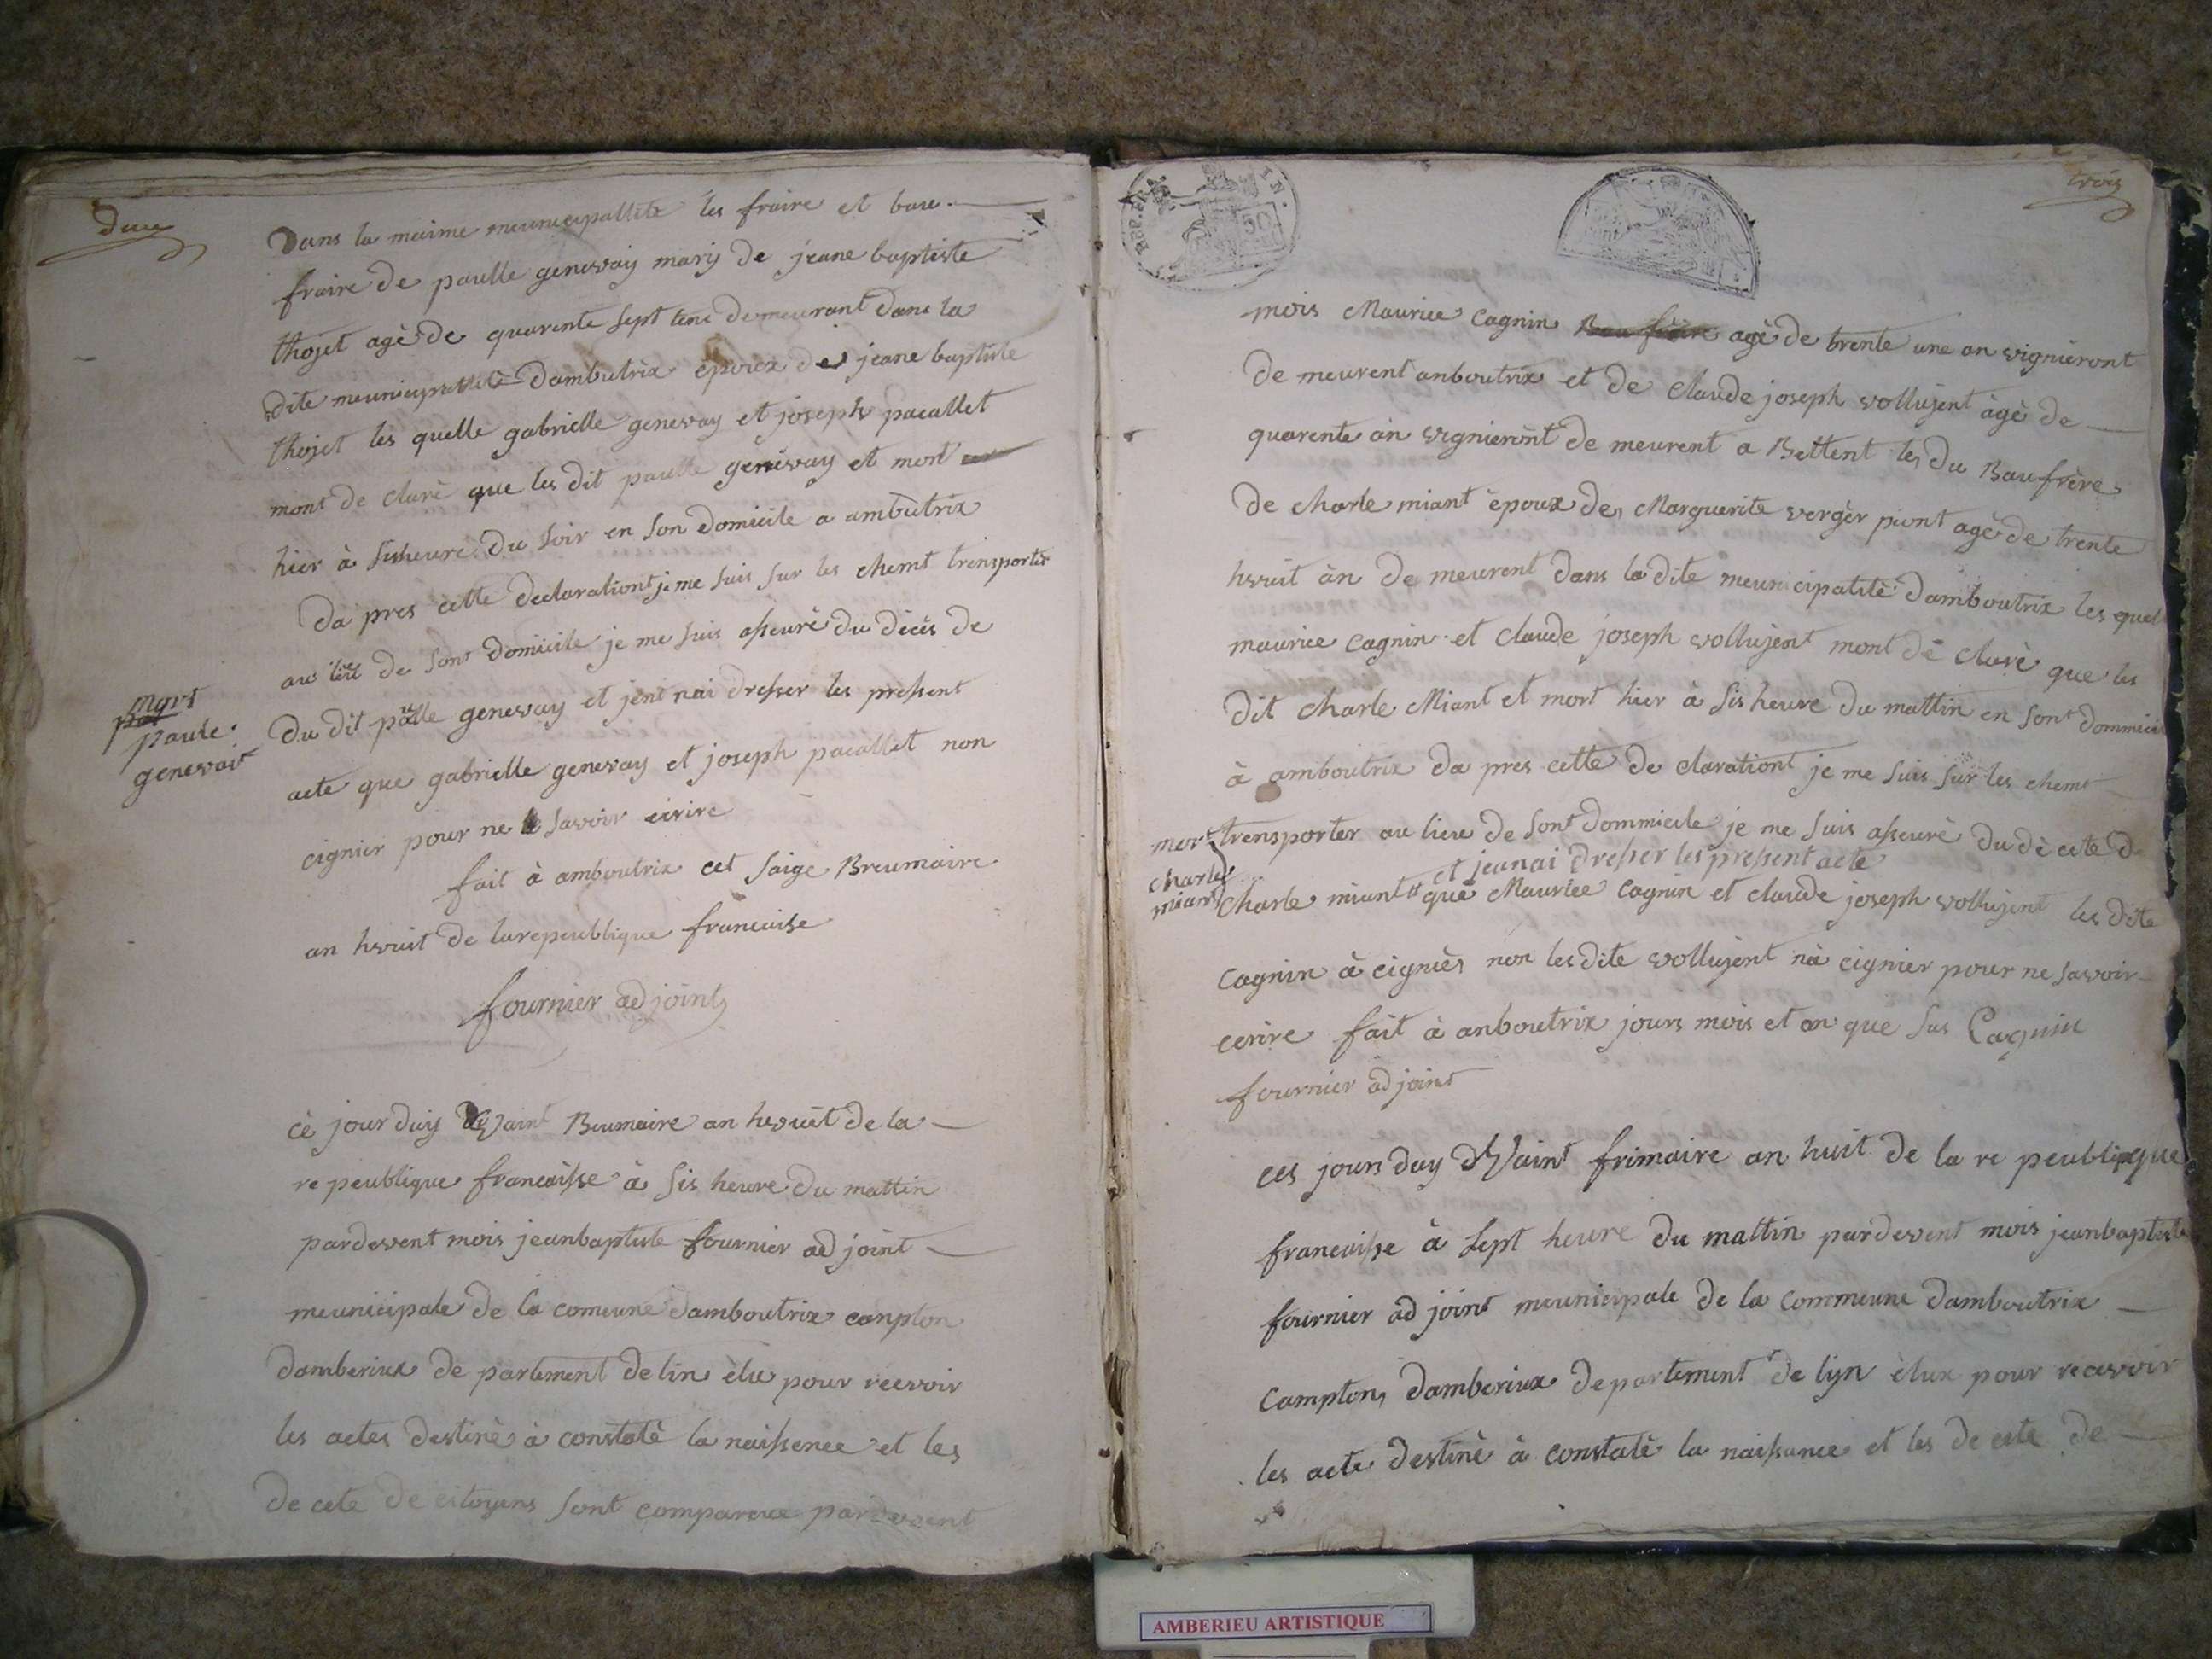 Deux
Dans la maime meunicipallité les fraire et bau
fraire de paulle genevay mary de jeane baptiste
thojet agè de quarente sept tens demeurant dans la
dite meunicipallité dambutrix èpoux de jeane baptiste
thojet les quelle gabrielle genevay et joseph pacallet
mont de clarè que les dit paulle genèvay et mort
hier à sisheure du soir en son domicile a ambutrix
da pres cette declarationt je me suis sur les chemt trensporter
au lieu de sont domicile je me suis asseurè du dècès de
mort
paule
genevait
du dit paulle genevay et jent nai dresser les pressent
acte que gabrielle genevay et joseph pacallet non
cignier pour ne savoir écrire
fait à amboutrix cet saige Breumaire
an hvuit de larepeublique francaise
fournier adjoint
cè jour duy vaint Breumaire an hevuit de la
re peublique francaisse à sis heure du mattin
pardevent mois jeanbaptiste fournier ad joint
meunicipale de la comeune damboutrix canpton
damberiux de partement de lin èlu pour recevoir
les actes destinè à constatè la naissence et les
de cete de citoyens sont compareue pardevent
trois
REP. FRA
50
mois Maurice cagnin Beu frère agè de trente une an vignièront
de meurent anboutrix et de claude joseph vollujent àgè de
quarente àn vignieront de meurent a Bettent les du Baufrère
de charle miant èpoux de Marguerite vergèr piont agè de trente
hvuit àn de meurent dans la dite meunicipalitè damboutrix les quel
maurice cagnin et claude joseph vollujent mont dè clarè que les
dit charle Miant et mort hier à sis heure du mattin en sont dommicil
à amboutrix da pres cette de clarationt je me suis sur les chemt
mort
charle
miant
trensporter au lieu de sont dommicile je me suis asseurè du dè cete d
et jeanai dresser les pressent acte
charle miant que Maurice cagnin et claude joseph vollujent les dite
cagnin à cignièr non les dite vollujent nà cignier pour ne savoir
ecrire fait à anboutrix jours mois et an que sus Cagnin
fournier adjoint
ces jours duy vaint frimaire an huit de la re peublique
francaisse à sept heure du mattin pardevent mois jeanbaptiste
fournier ad joint meunicipale de la commeune damboutrix
campton damberiux departement de lyn èlux pour recevoir
les acte destinè à constatè la naissance et les de cete de
AMBERIEU ARTISTIQUE